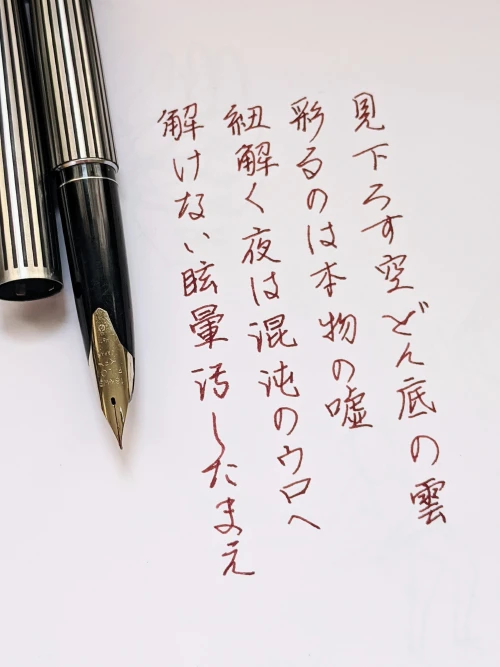 見下ろす空どん底の雲
彩るのは本物の嘘
紐解く夜は混沌のウロへ
解けない眩暈汚したまえ